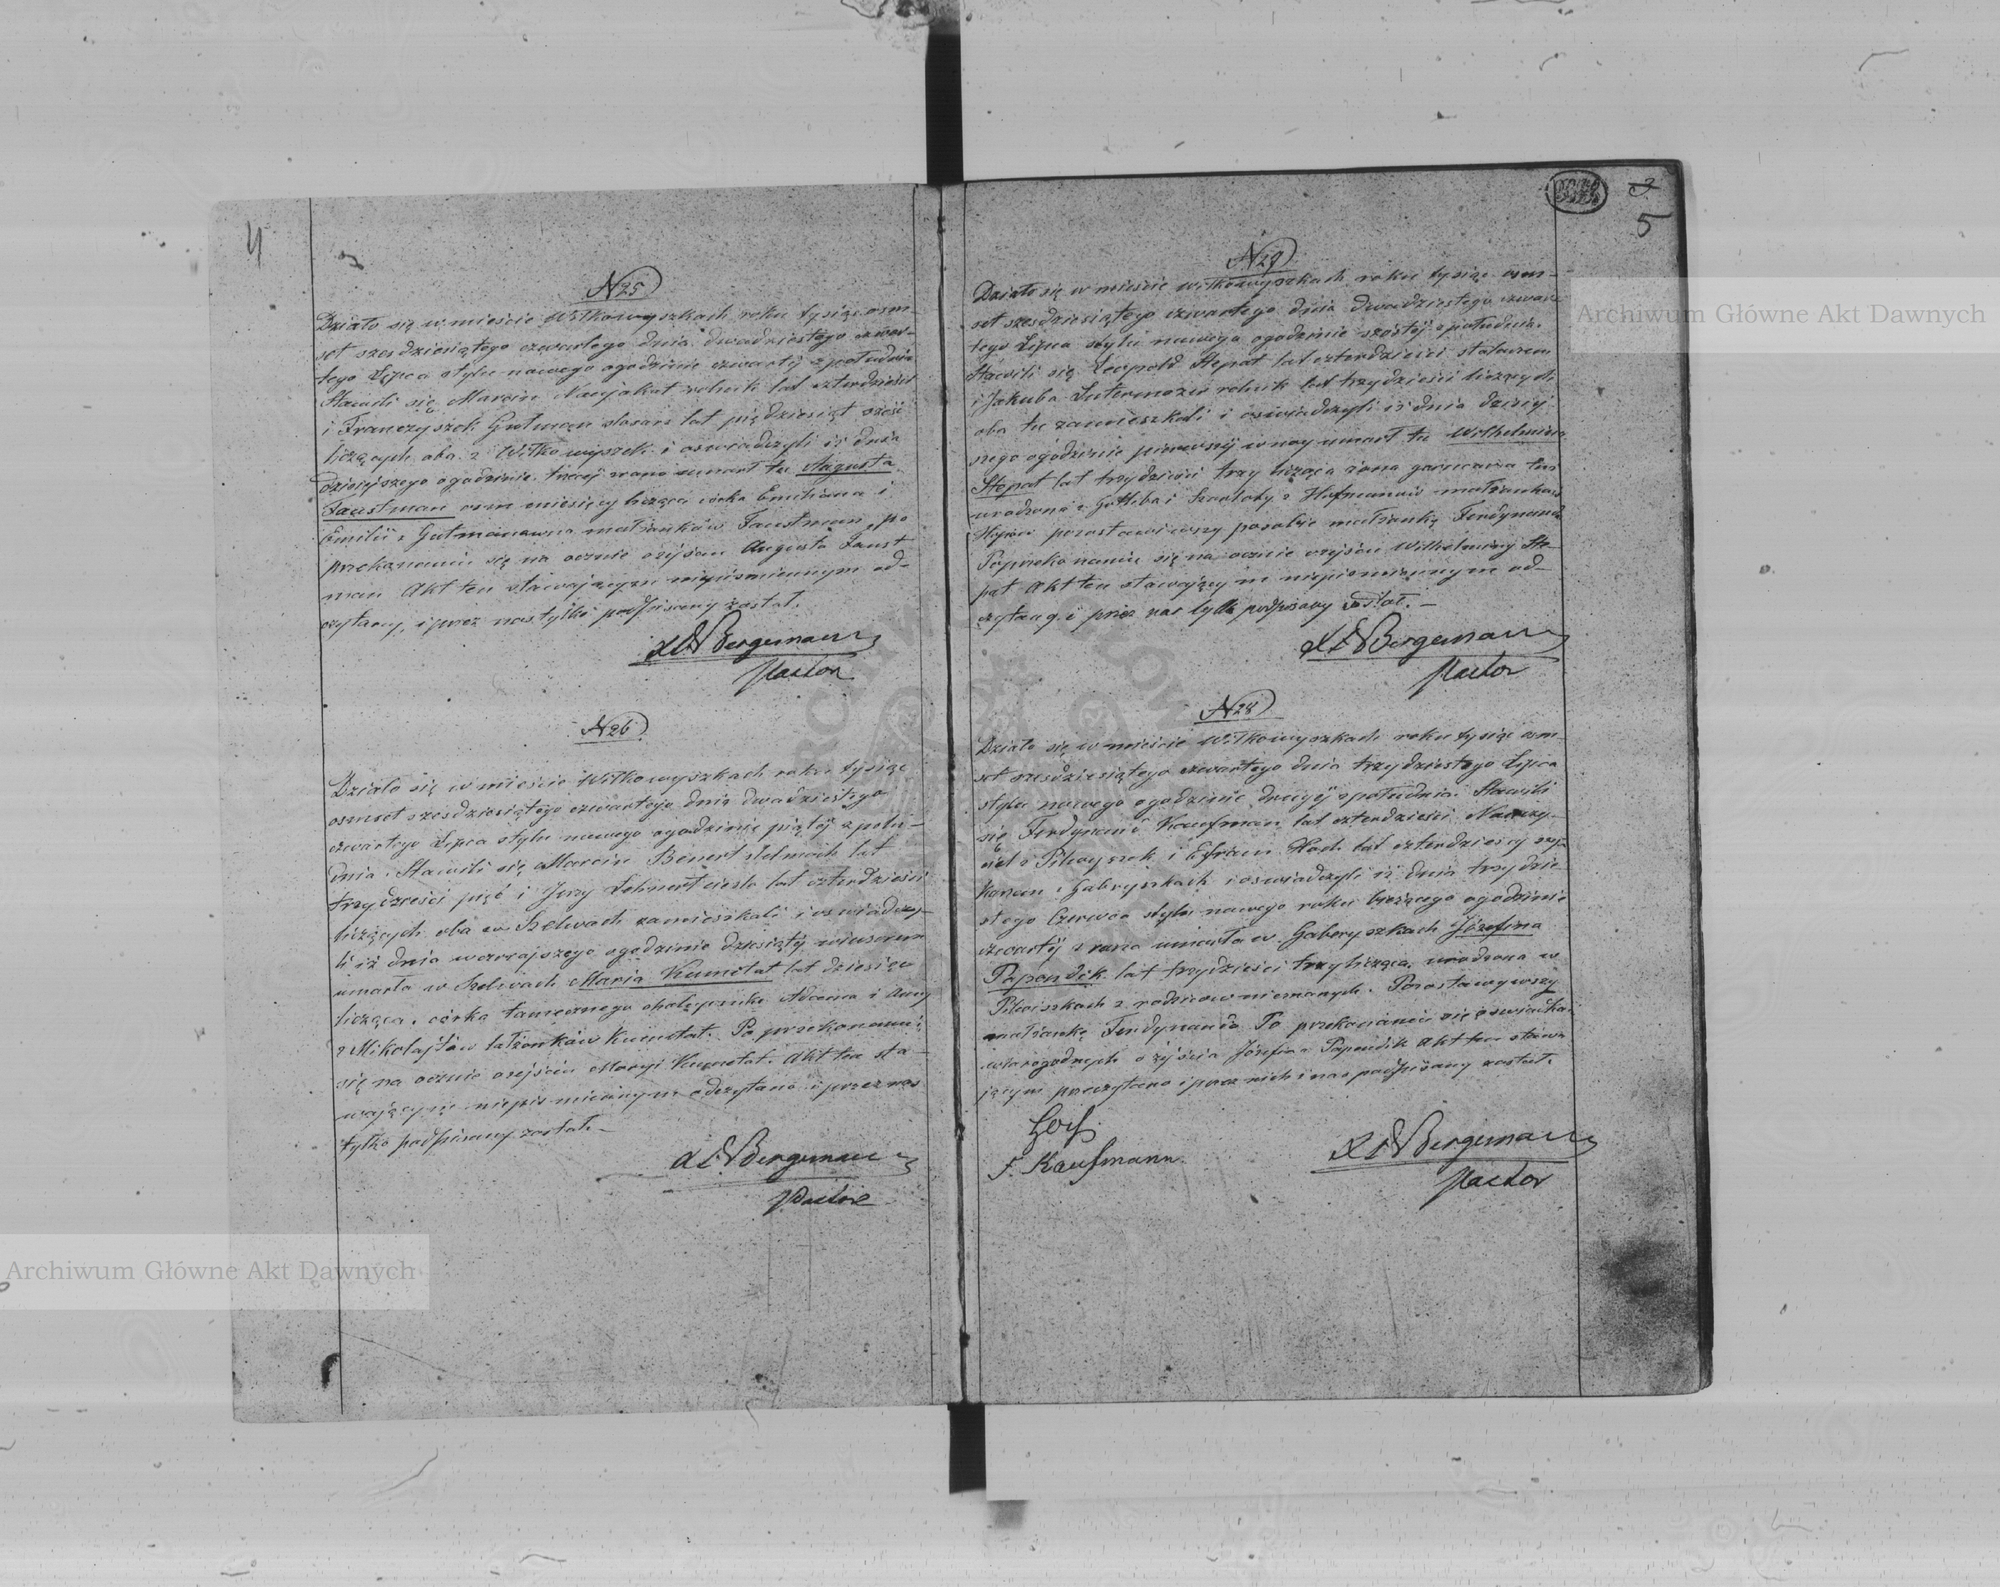 4
N 25
Działo się w mieście Wiłkowyszkach roku tysiąc osm-
set szesdziesiątego czwartego dnia dwadziestego czwar-
tego Lipca stylu nowego o godzinie czwartéj z południa
Stawili się Marcin rolnik lat czterdzieści
i Franczyszek Gutman slosarz lat pięćdziesiąt sześć
liczących oba z Wiłkowyszek i oswiadczyli iż dnia
dzisiejszego o godzinie trzeciej z rana umarł tu Augusta
Faustman osm miesięcy licząca córka Emiliana i
Emilii z Gutmanów małżonków Faustman, po
przekonaniu się na ocznie o zejściu Augusta Faust
man Akt ten stawającym niepismiennym od-
czytany, i przez nas tylko podpisany został.
Bergemann
Pastor
N 26
Działo się w mieście Wiłkowyszkach roku tysiąc
osmset szesdziesiątego czwartego dnia dwadziestego
czwartego Lipca stylu nowego o godzinie piątéj z połu-
dnia. Stawili się Marcin Benert stelmach lat
trzydzieści pięć i Jerzy Lehnert ciesla lat czterdzieści
liczących oba w Szelwach zamieszkali i oswiadczy-
li iż dnia wczorajszego o godzinie dziesiątéj wieczorem
umarła w Szelwach Maria Kumetat lat dziesięć
licząca, córka tamecznego Adama i Anny
z Mikołajtów małżonków Kumetat. Po przekonaniu
się na ocznie o zejściu Maryi Kumetat. Akt ten sta-
wającym niepismiennym odczytano i przez nas
tylko podpisany został.
Bergemann
Pastor
3
5
N 27
Działo się w mieście Wiłkowyszkach roku tysiąc osm-
set szesdziesiątego czwartego dnia dwadziestego czwar-
tego Lipca stylu nowego o godzinie szóstéj z południa.
Stawili się Leopold Stepat lat czterdzieści
i Jakub rolnik lat trzydzieści liczących
oba tu zamieszkali i oswiadczyli iż dnia dzisiej
szego o godzinie pierwszéj w nocy umarł tu Wilhelmina
Stepat lat trzydzieści trzy licząca żona garncarza tu
urodzona z Gottliba i Szarloty z Hofmanów małżonków
pozostawiwszy po sobie małżonka Ferdynanda
Po przekonaniu się na ocznie o zejściu Wilhelminy Ste-
pat Akt ten stawającym niepismiennym od-
czytany i przez nas tylko podpisany został. —
Bergemann
Pastor
N 28
Działo się w mieście Wiłkowyszkach roku tysiąc osm
set szesdziesiątego czwartego dnia trzydziestego Lipca
stylu nowego o godzinie drugiéj z południa. Stawili
się Ferdynand Kaufman lat czterdzieści Nauczy-
ciel z Pilwyszek i Efraim lat czterdzieści
w Gabryszkach i oswiadczyli iż dnia trzydzie
stego Czerwca stylu nowego roku bieżącego o godzinie
czwartéj z rana umarła w Gabryszkach Józefina
Papendik lat trzydzieści trzy licząca urodzona w
Pilwiszkach z rodziców nieznanych. Pozostawiwszy
małżonka Ferdynanda Po przekonaniu się
wiarogodnych o zejściu Józefina Papendik Akt ten stawa
jącym przeczytano i przez nich i nas podpisany został.
F. Kaufmann
Bergemann
Pastor
Archiwum Główne Akt Dawnych
Archiwum Główne Akt Dawnych